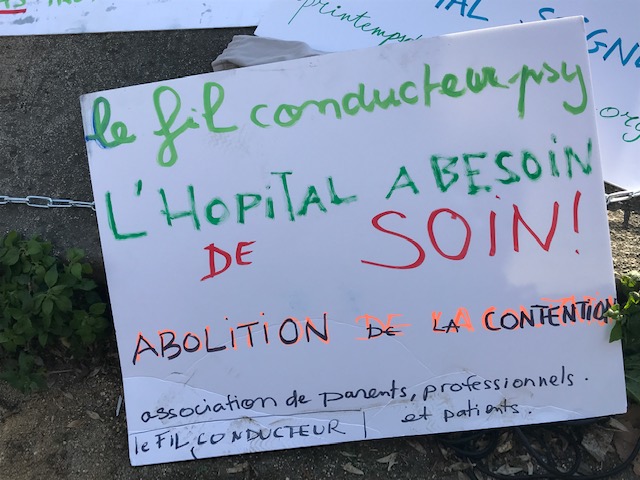 printemps
le fil conducteur-psy
L'HOPITAL A BESOIN
DE SOIN!
ABOLITION DE LA CONTENTION
association de parents, professionnels.
et patients.
le FIL CONDUCTEUR